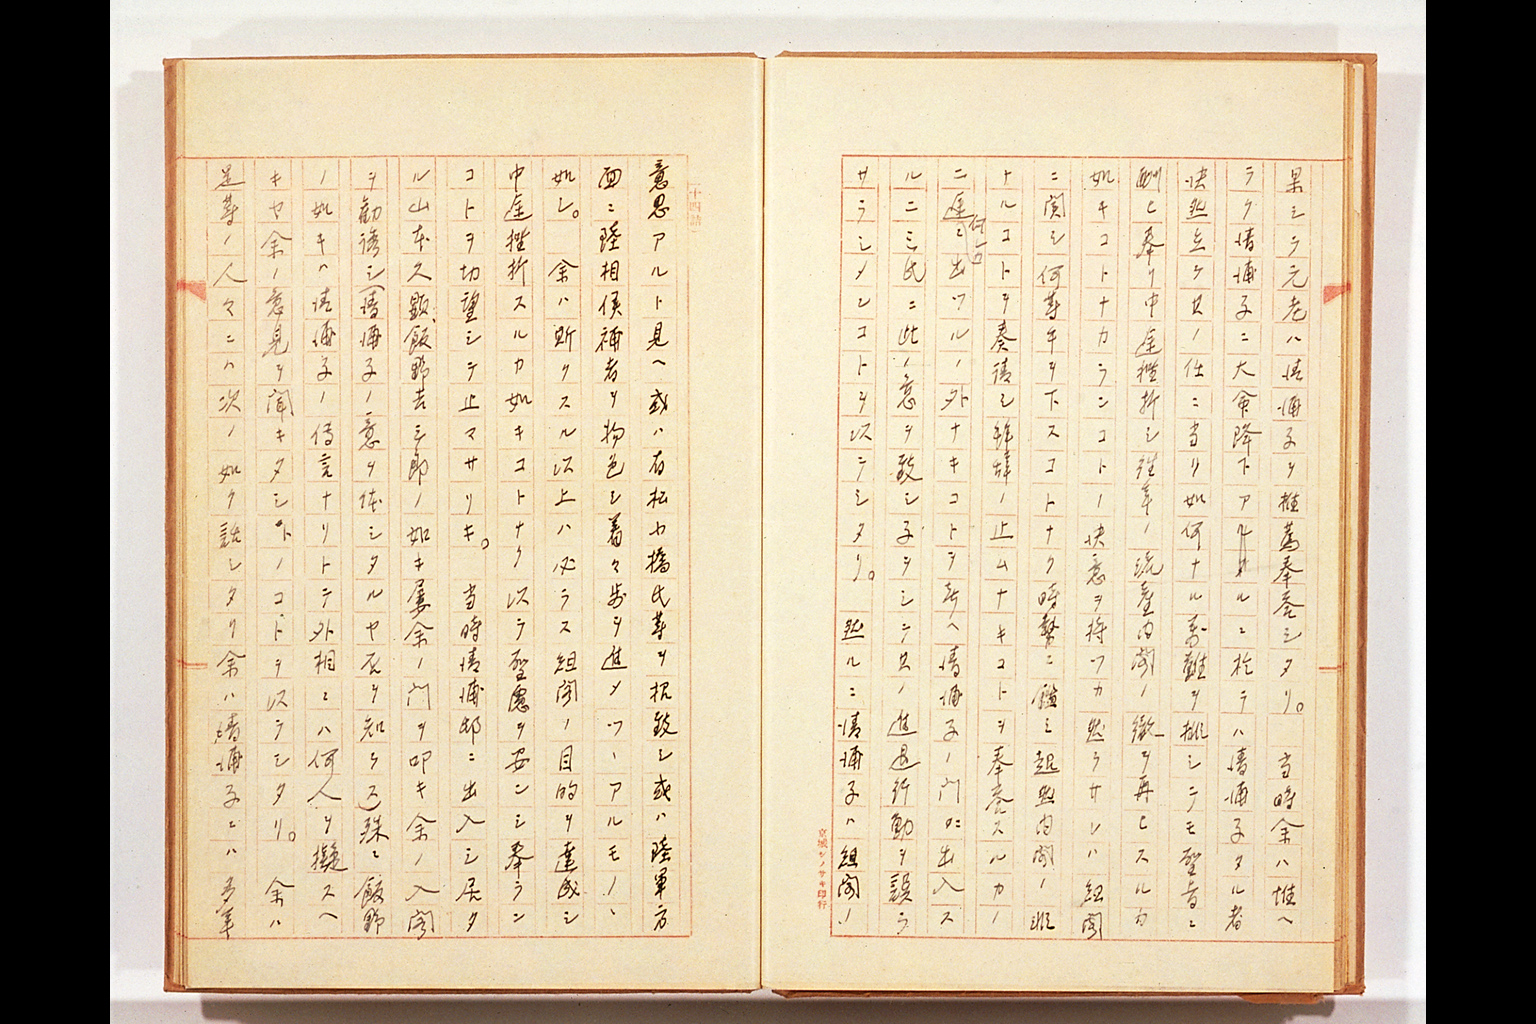 果シテ元老ハ清浦子ヲ推薦奉答シタリ。 当時余ハ惟ヘ
ラク清浦子ニ大命降下アルニ於テハ清浦子タル者
決然立ケ其ノ任ニ当リ如何ナル万難ヲ排シテモ聖旨ニ
酬ヒ奉リ中途挫折シ往年ノ流産内閣ノ徹ヲ再ヒスルカ
如キコトナカランコトノ決意ヲ持ツカ然ラサレハ組閣
ニ関シ何等手ヲ下スコトナク時勢ニ鑑ミ超然内閣ノ非
ナルコトヲ奏請シ拝辞ノ止ムナキコトヲ奉答スルカノ
ニ途ニ出ツルノ外ナキコトヲ考ヘ清浦子ノ門ニ出入ス
何レカ
ル二三氏ニ此ノ意ヲ致シ子ヲシテ其ノ進退行動ヲ誤ラ
サラシメンコトヲ以テシタリ。 然ルニ清浦子ハ組閣ノ
京城シノサキ印行
十四詰
意思アルト見ヘ或ハ有松、大橋氏等ヲ招致シ或ハ陸軍方
面ニ陸相候補者ヲ物色シ着々歩ヲ進メツヽアルモノヽ
如シ。 余ハ斯クスル以上ハ必ラス組閣ノ目的ヲ達成シ
中途挫折スルカ如キコトナク以テ聖慮ヲ安ンシ奉ラン
コトヲ切望シテ止マサリキ。 当時清浦邸ニ出入シ居タ
ル山本久顕、飯野吉三郎ノ如キ屡余ノ門ヲ叩キ余ノ入閣
ヲ勧誘シ(清浦子ノ意ヲ体シタルヤ否ヲ知ラス)殊ニ飯野
ノ如キハ清浦子ノ伝言ナリトテ外相ニハ何人ヲ擬スヘ
キヤ余ノ意見ヲ聞キタシトノコトヲ以テシタリ。 余ハ
是等ノ人々ニハ次ノ如ク話シタリ余ハ清浦子トハ多年